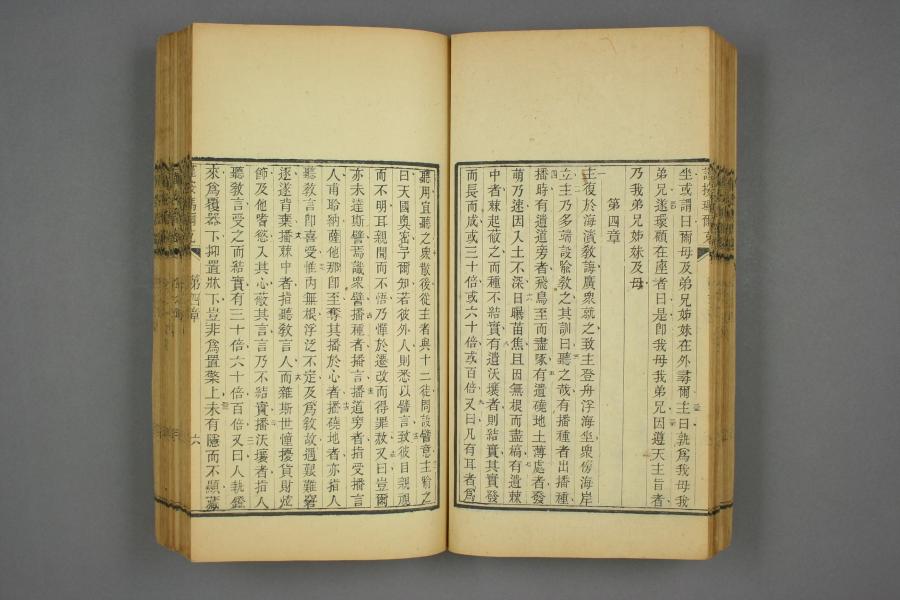 坐或謂曰爾母及弟兄姊妹在外尋爾主曰孰爲我母我
弟兄遂環顧在座者曰是卽我母我弟兄因遵天主旨者
乃我弟兄姊妹及母
第四章
主復於海濱教誨廣衆就之致主登舟浮海坐衆傍海岸
立主乃多端設喻教之其訓曰聽之哉有播種者出播種
播時有遺道旁者飛鳥至而盡啄有遺磽地土薄處者發
萌乃速因入土不深日曝苗焦且因無根而盡槁有遺棘
中者棘起蔽之而種不結實有遺沃壤者則結實其實發
而長而成或三十倍或六十倍或百倍又曰凡有耳者爲
聽用宜聽之衆散後從主者與十二徒問設譬意主喻之
曰天國奧密予爾知若彼外人則悉以譬言致彼目親視
而不明耳親聞而不悟乃憚於遷改而得罪赦又曰豈爾
亦未達斯譬焉識衆譬播種者播言播道旁者指受播言
人甫聆納薩他那卽至奪其播於心者播磽地者亦指人
聽教言卽喜受惟內無根浮泛不定及爲教故遇艱難窘
逐遂背棄播棘中者指聽教言人而雜斯世憧擾貨財炫
飾及他皆慾入其心蔽其言言乃不結實播沃壤者指人
聽教言受之而結實有三十倍六十倍百倍又曰人執燈
來爲覆器下抑置牀下豈非爲置檠上未有隱而不顯藏
第四章
六